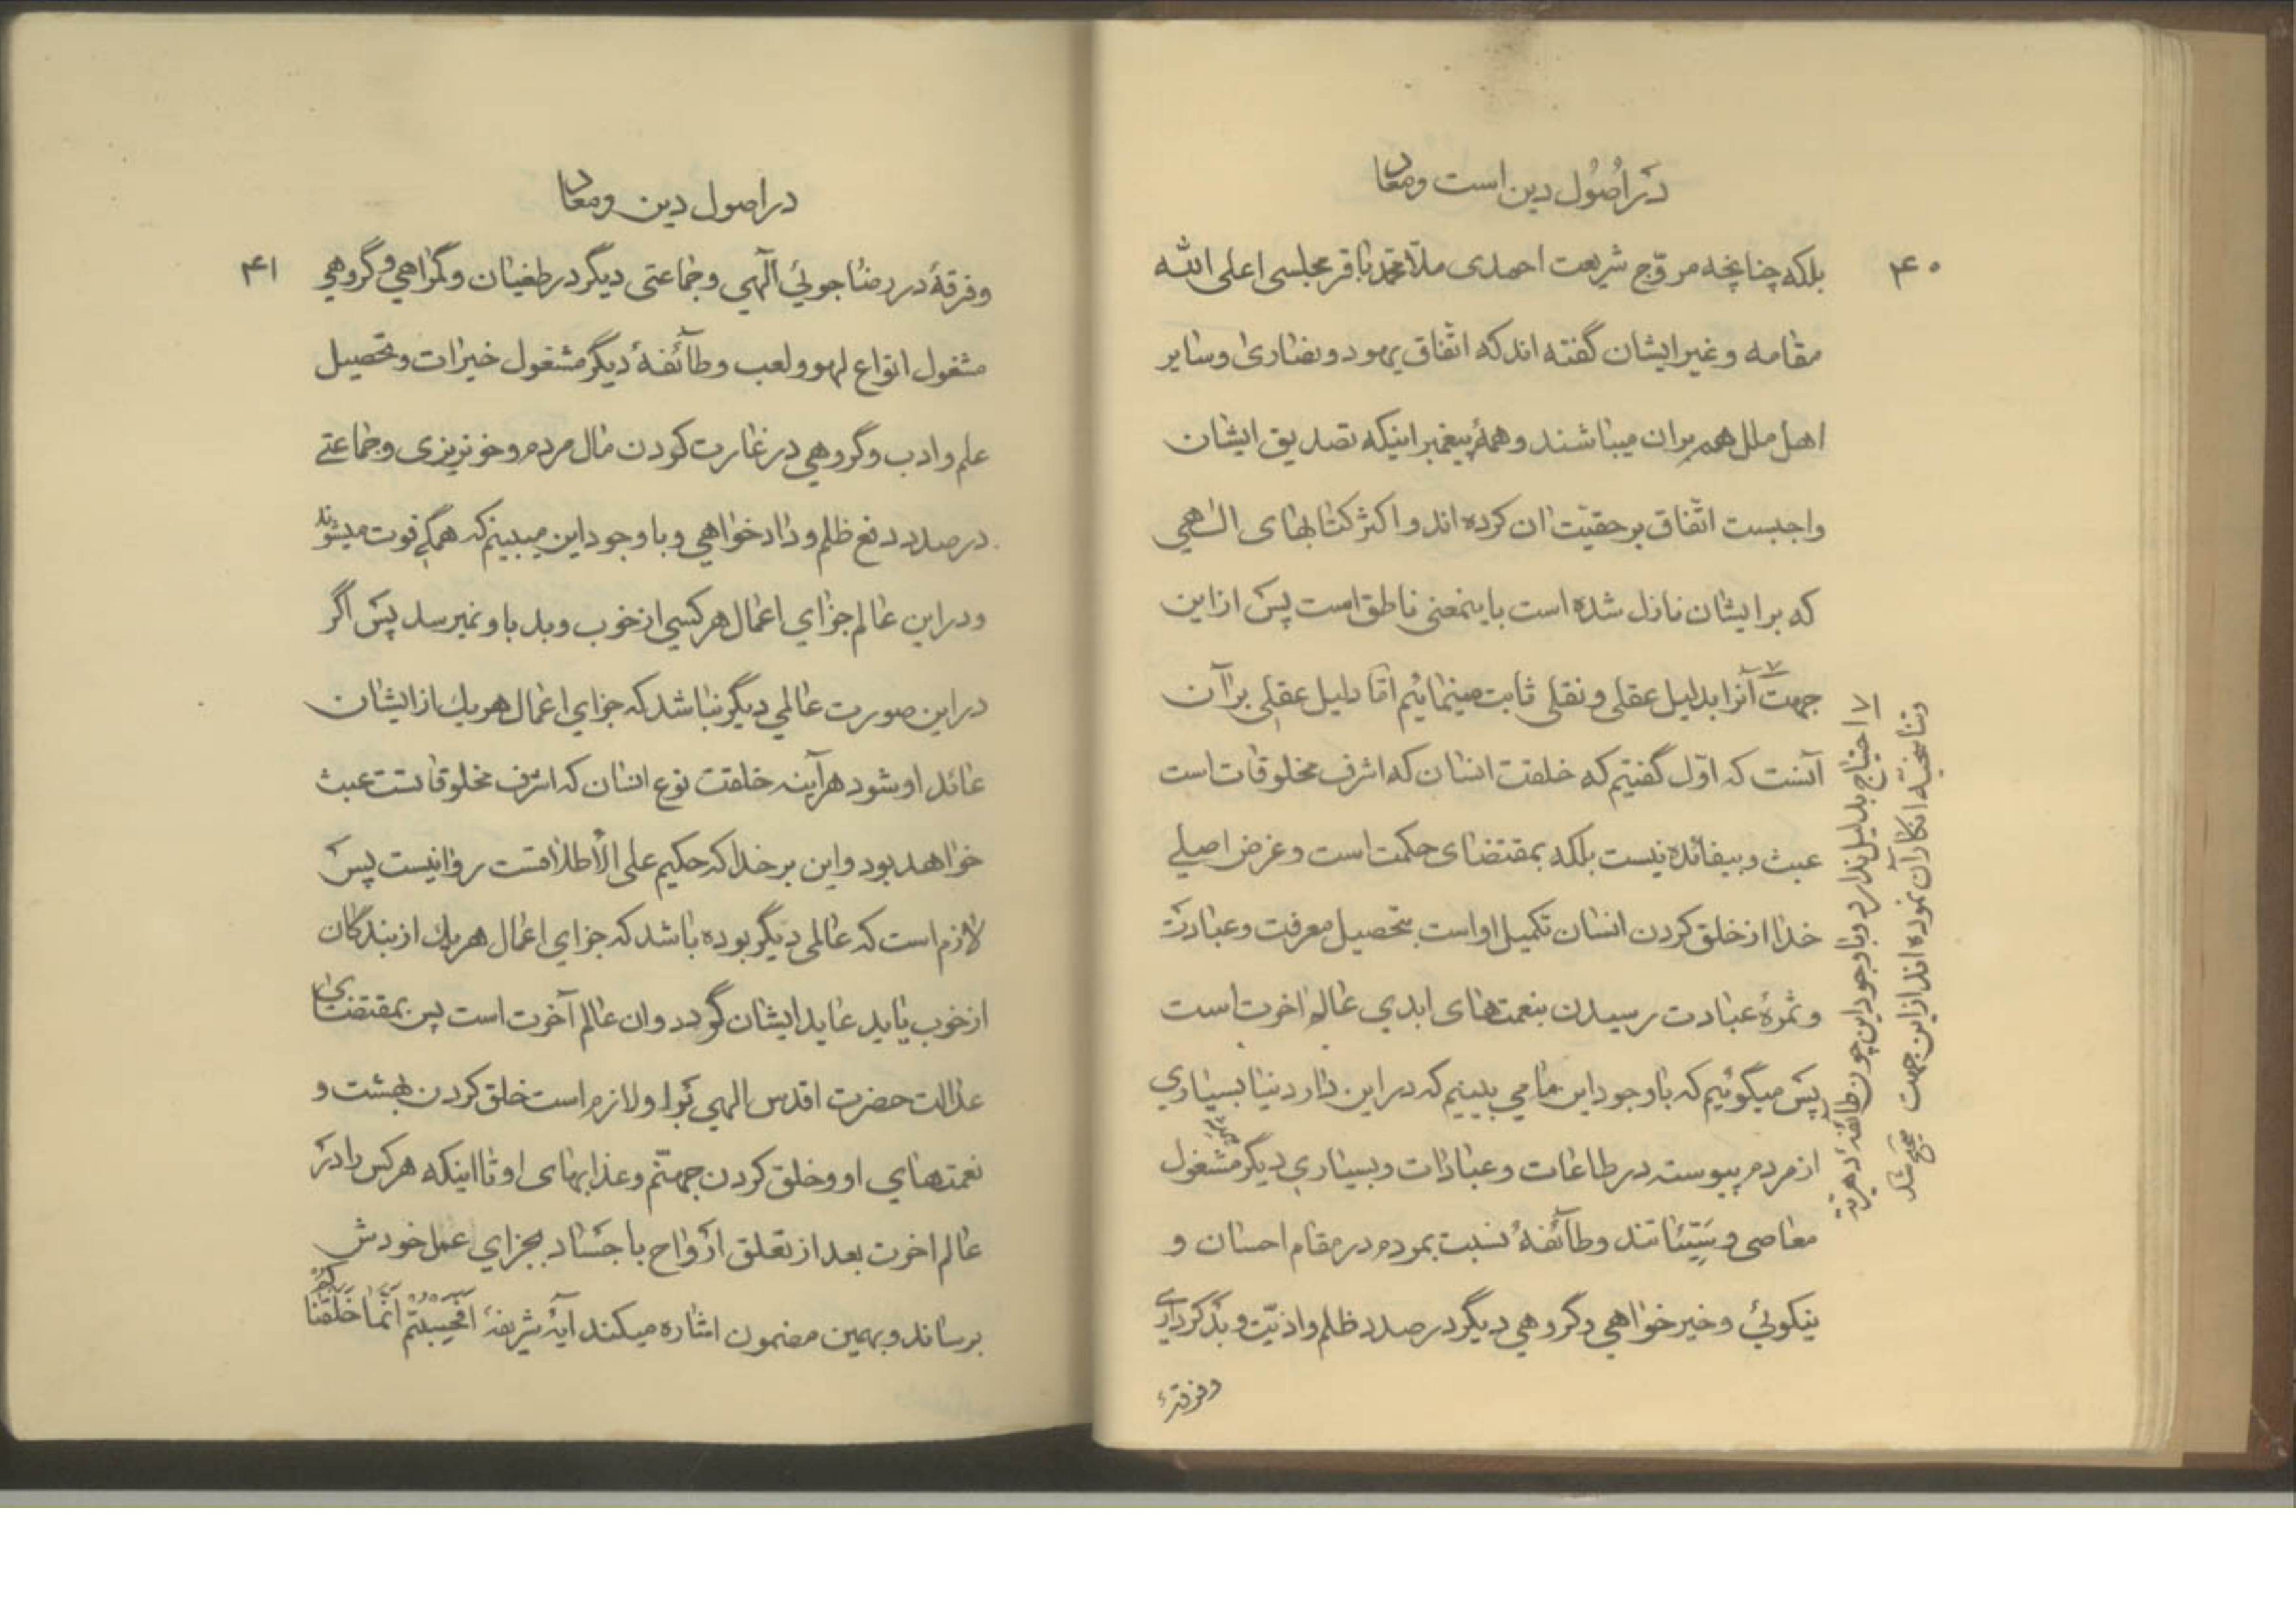 در اُصُول دین است ومعاد
۴۰
بلکه چنانچه مروّج شریعت احمدی ملّا محمّد باقر مجلسی اعلی الله
مقامه وغیر ایشان گفته اند که اتّفاق یهود ونصاری وسایر
اهل ملل هم بران میباشند وهمهٔ پیغمبر اینکه تصدیق ایشان
واجبست اتّفاق بر حقیّت ان کرده اند واکثر کتابهای الهی
که بر ایشان نازل شده است باینمعنی ناطق است پس از این
جهت آنرا بدلیل عقلی ونقلی ثابت مینمائیم امّا دلیل عقلی بر آن
آنست که اوّل گفتیم که خلقت انسان که اشرف مخلوقات است
عبث وبیفائده نیست بلکه بمقتضای حکمت است وغرض اصلی
خدا از خلق کردن انسان تکمیل او است بتحصیل معرفت وعبادت
وثمرهٔ عبادت رسیدن بنعمتهای ابدی عالم اخرت است
پس میگوئیم که باوجود این ما می بینیم که در این دار دنیا بسیاری
از مردم پیوسته در طاعات وعبادات وبسیاری دیگر مشغول
معاصی وسَیِّئاتند وطآئفهٔ نسبت بمردم در مقام احسان و
نیکوئی وخیر خواهی وگروهی دیگر در صدد ظلم واذیّت وبدکرداری
وفرقهٔ
۷ احتیاج بدلیل ندارد وباوجود این چون طائفهٔ دهریّه
وتناسخیّه انکار آن نموده اند از این جهت صحیح شد
در اصول دین ومعاد
۴۱
وفرقهٔ در رضا جوئی آلهی وجماعتی دیگر در طغیان وگمراهی وگروهی
مشغول انواع لهو ولعب وطآئفهٔ دیگر مشغول خیرات وتحصیل
علم وادب وگروهی در غارت کردن مال مردم وخونریزی وجماعتی
در صدد دفع ظلم وداد خواهی وبا وجود این میبینم که همگی فوت میشوند
ودر این عالم جزای اعمال هر کسی از خوب وبد باو نمیرسد پس اگر
در این صورت عالمی دیگر نباشد که جزای اعمال هر یک از ایشان
عائد او شود هرآینه خلقت نوع انسان که اشرف مخلوقاتست عبث
خواهد بود واین بر خدا که حکیم علی الأطلاقست روا نیست پس
لازم است که عالمی دیگر بوده باشد که جزای اعمال هر یک از بندگان
از خوب یا بد عاید ایشان گردد وان عالم آخرت است پس بمقتضای
عدالت حضرت اقدس الهی بر او لازم است خلق کردن بهشت و
نعمتهای او وخلق کردن جهنّم وعذابهای او تا اینکه هر کس را در
عالم اخرت بعد از تعلق ارواح با جساد بجزای عمل خودش
برساند وبهمین مضمون اشاره میکند آیهٔ شریفهٔ اَفَحَسِبْتُمْ اَنَّمَا خَلَقْنَاکُمْ